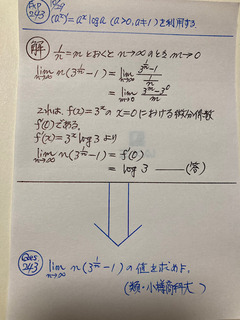 Exp 243
(a^x)' = a^x log a (a>0, a≠1) を利用する
解
1/n = m とおくと n→∞ のとき m→0
lim_{n→∞} n(3^{1/n}-1) = lim_{n→∞} (3^{1/n}-1)/(1/n)
= lim_{m→0} (3^m-3^0)/m
これは、f(x)=3^x の x=0 における微分係数
f'(0)である。
f'(x)=3^x log 3 より
lim_{n→∞} n(3^{1/n}-1) = f'(0)
= log 3 —— (答)
Ques 243
lim_{n→∞} n(3^{1/n}-1) の値を求めよ。
(類・小樽商科大)